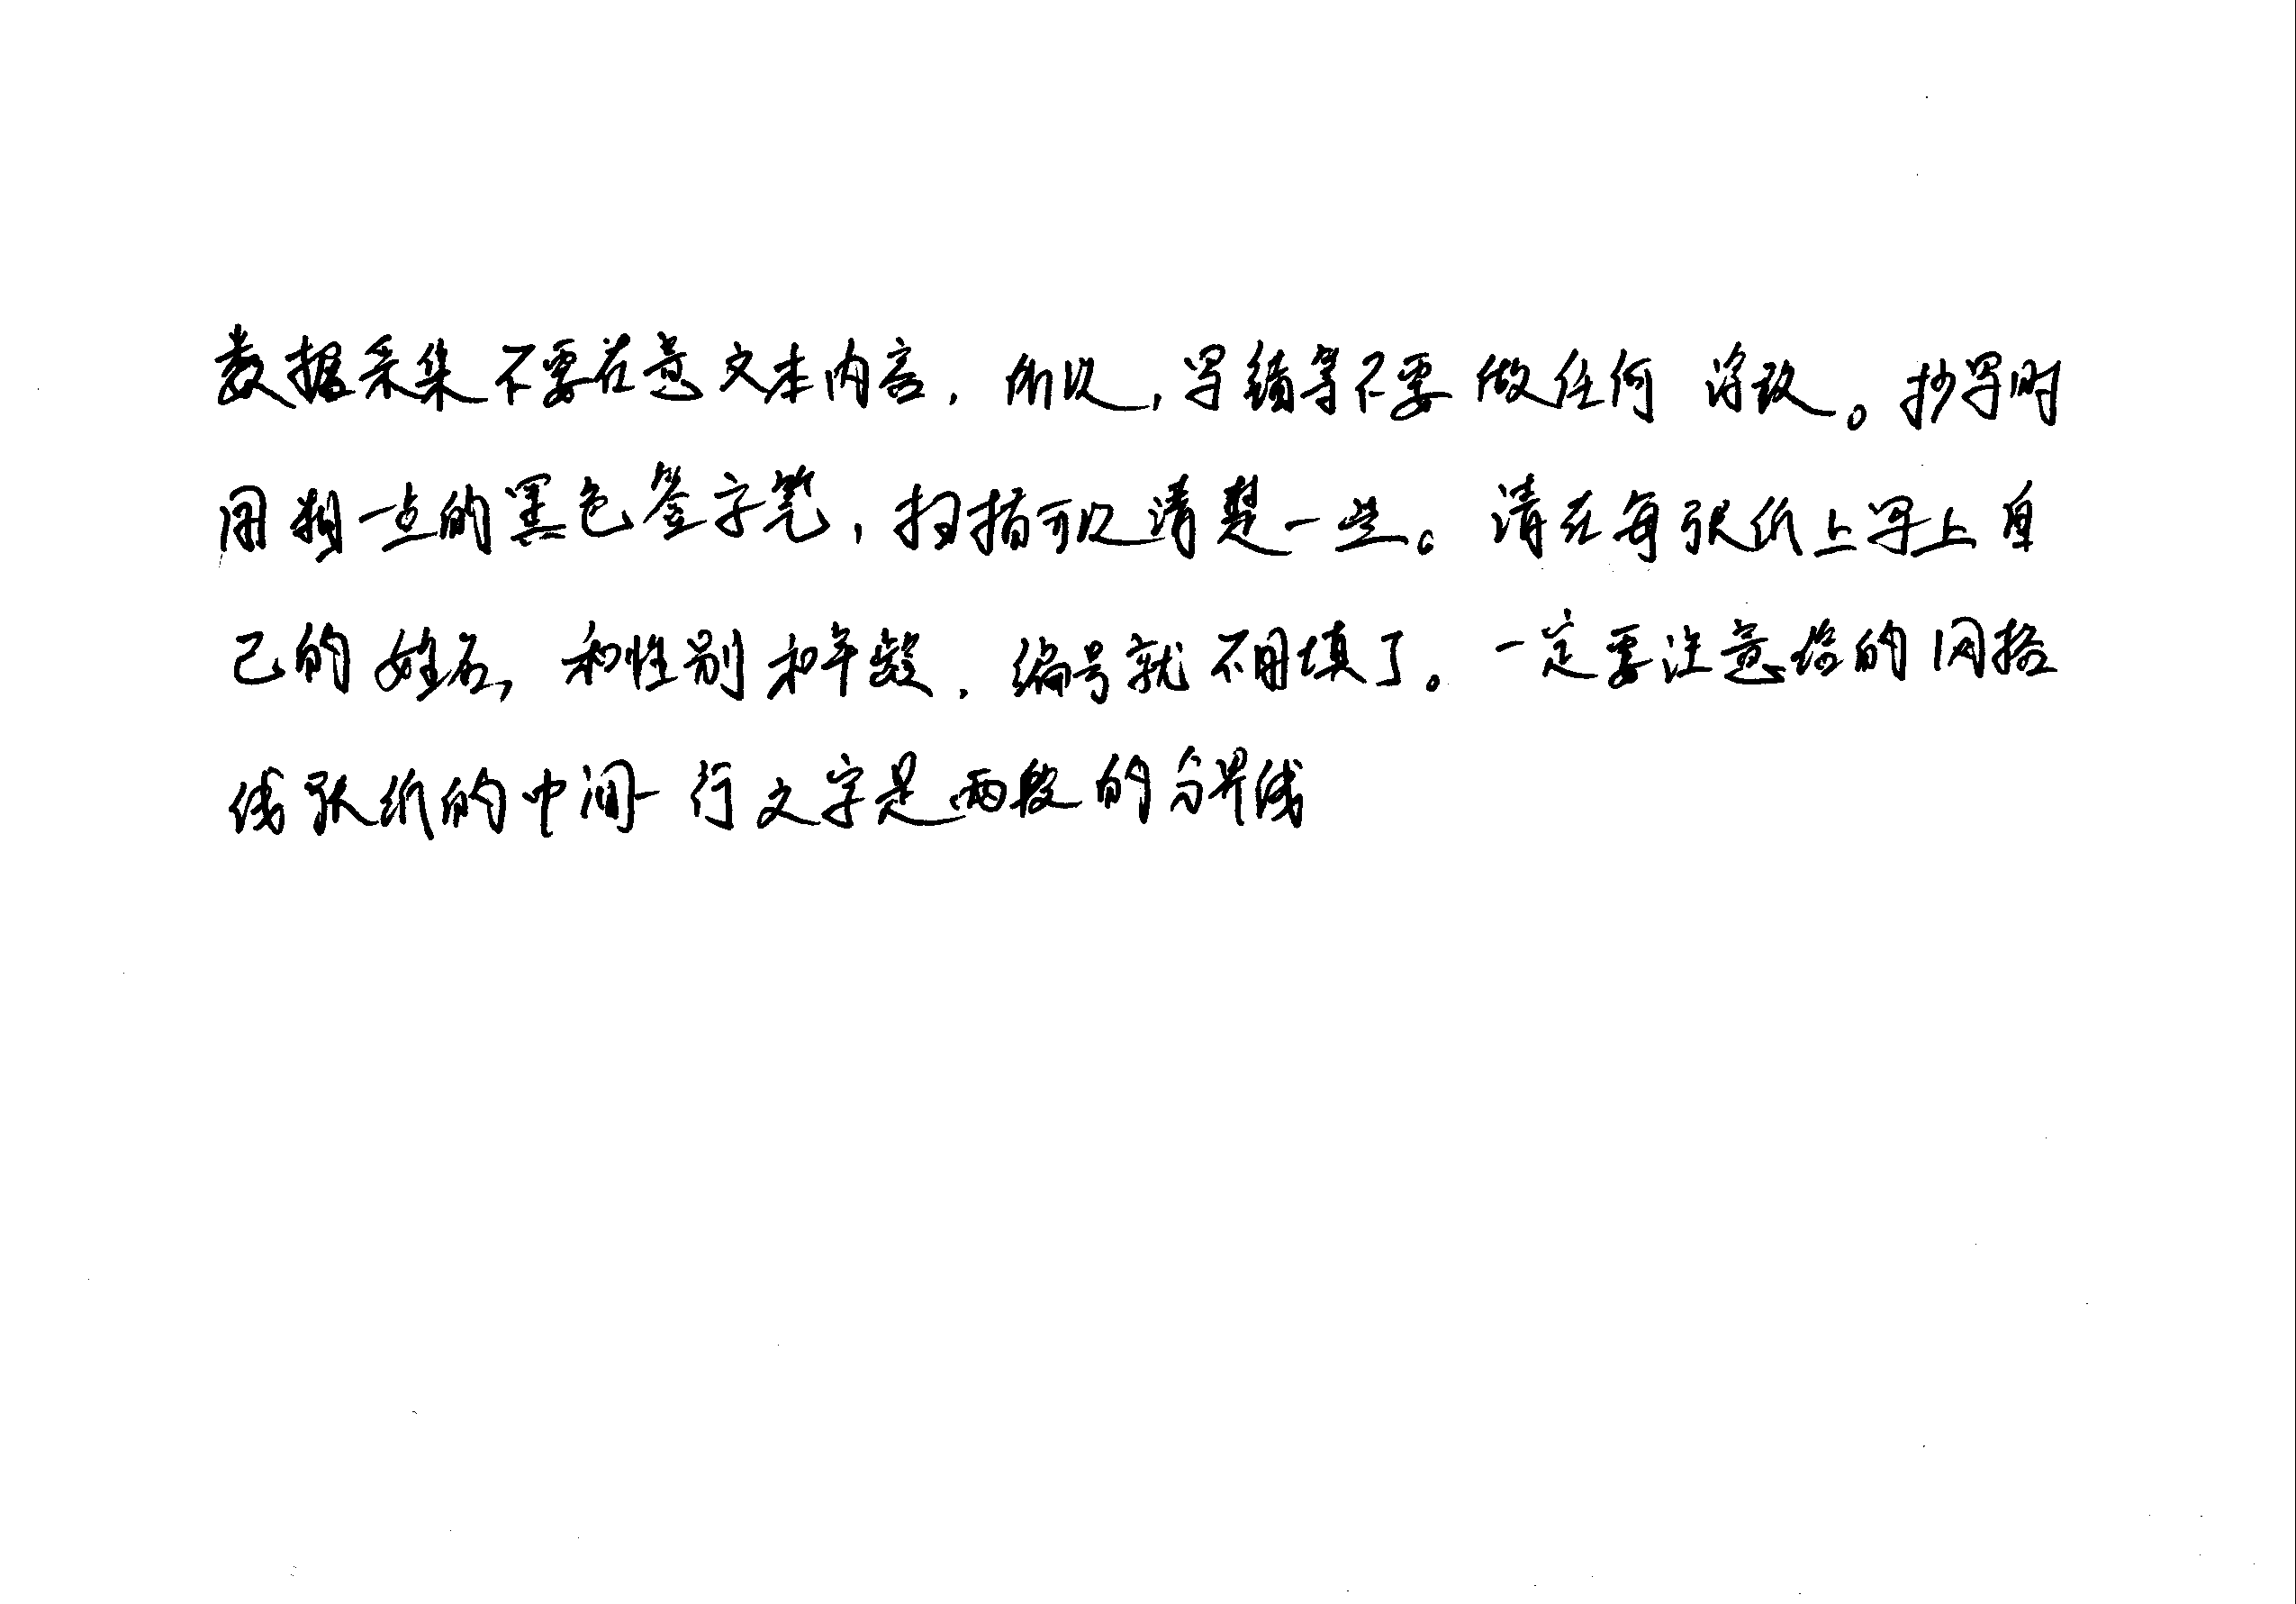 数据采集不要在意文本内容，所以，写错等不要做任何涂改。抄写时
用粗一点的黑色签字笔，扫描可以清楚一些。请在每张纸上写上自
己的姓名，和性别和年龄，编号就不用填了。一定要注意给的网格
线张纸的中间一行文字是两段的分界线